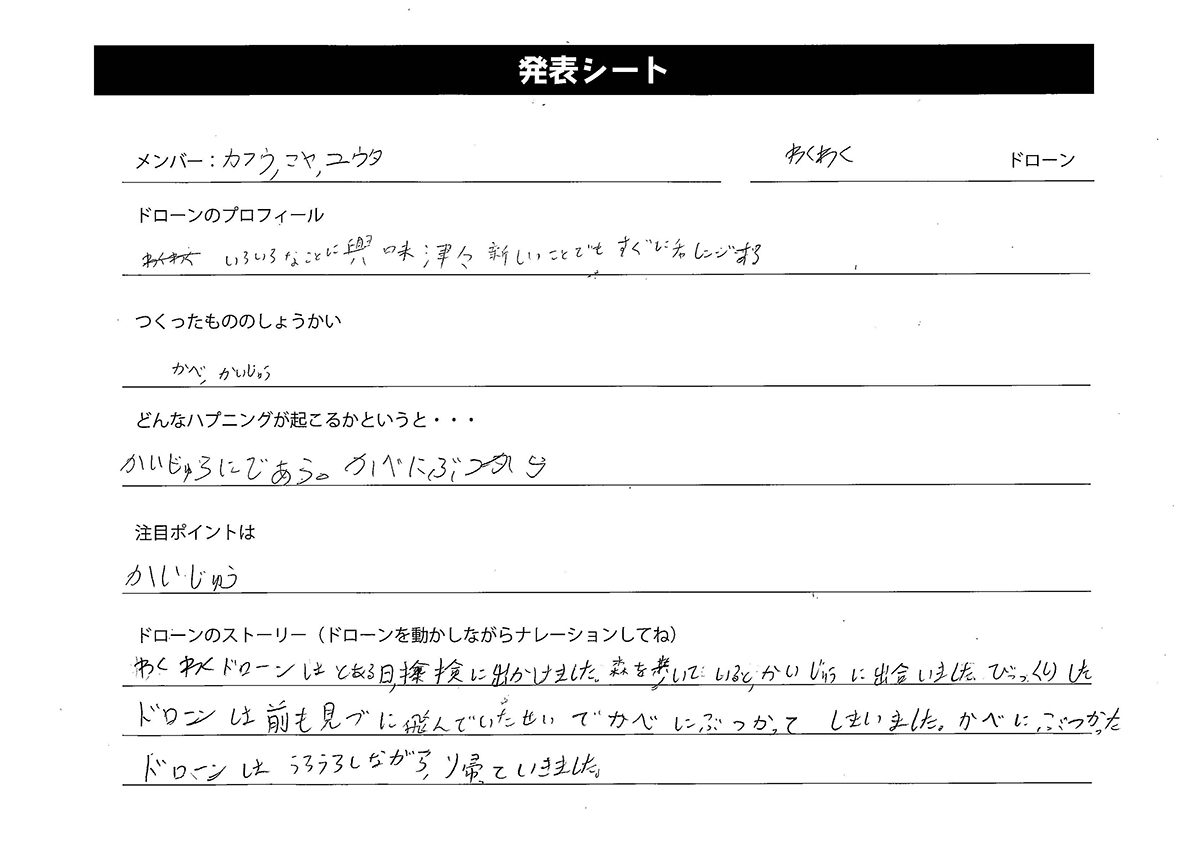 発表シート
メンバー：カフウ,マヤ,ユウタ
わくわく ドローン
ドローンのプロフィール
いろいろなことに興味津々新しいことでもすぐにチャレンジする
つくったもののしょうかい
かべ,かいじゅう
どんなハプニングが起こるかというと・・・
かいじゅうにであう。かべにぶつかる
注目ポイントは
かいじゅう
ドローンのストーリー（ドローンを動かしながらナレーションしてね）
わくわくドローンはとある日,探検に出かけました。森を歩いていると,かいじゅうに出合いました。びっくりした
ドローンは前も見づに飛んでいたせいでかべにぶつかってしまいました。かべにぶつかった
ドローンはうろうろしながら,帰っていきました。